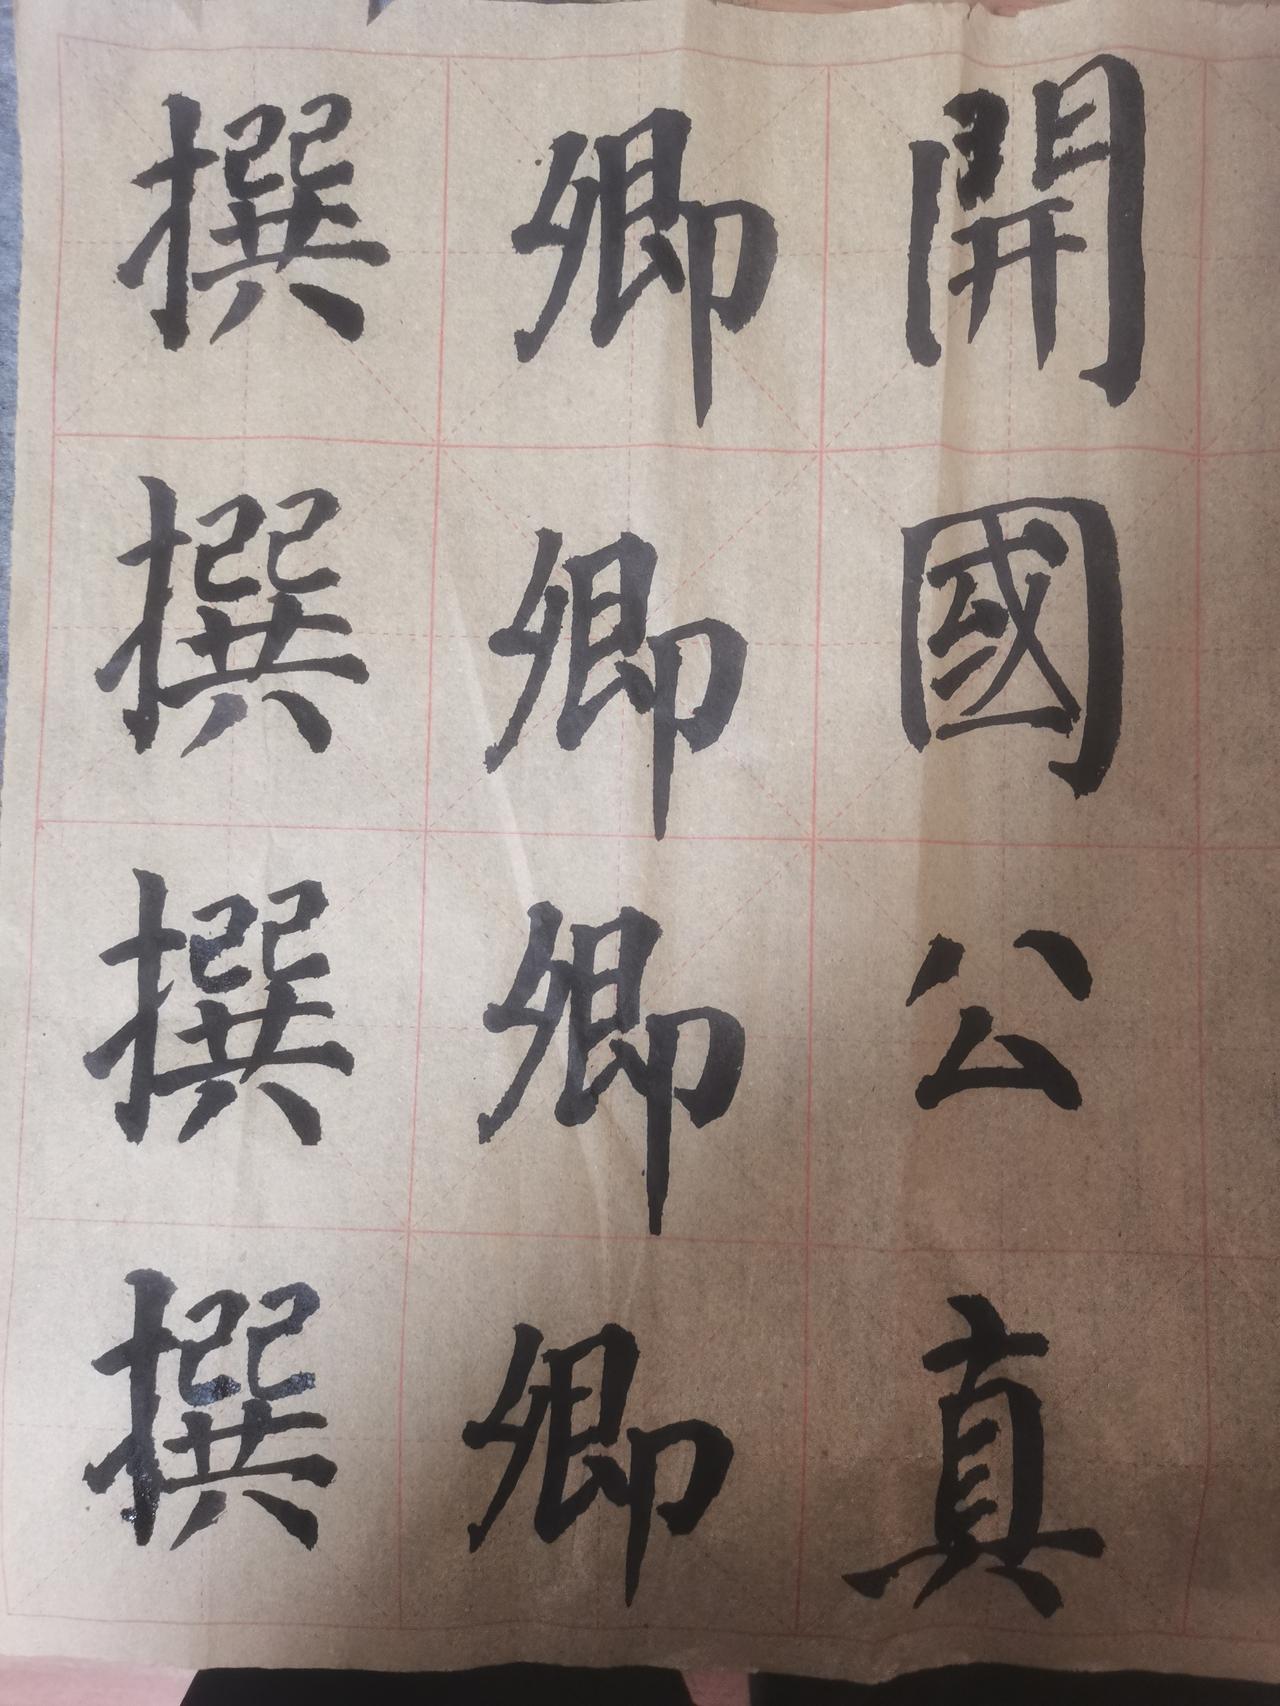 開國公真
卿卿卿卿
撰撰撰撰